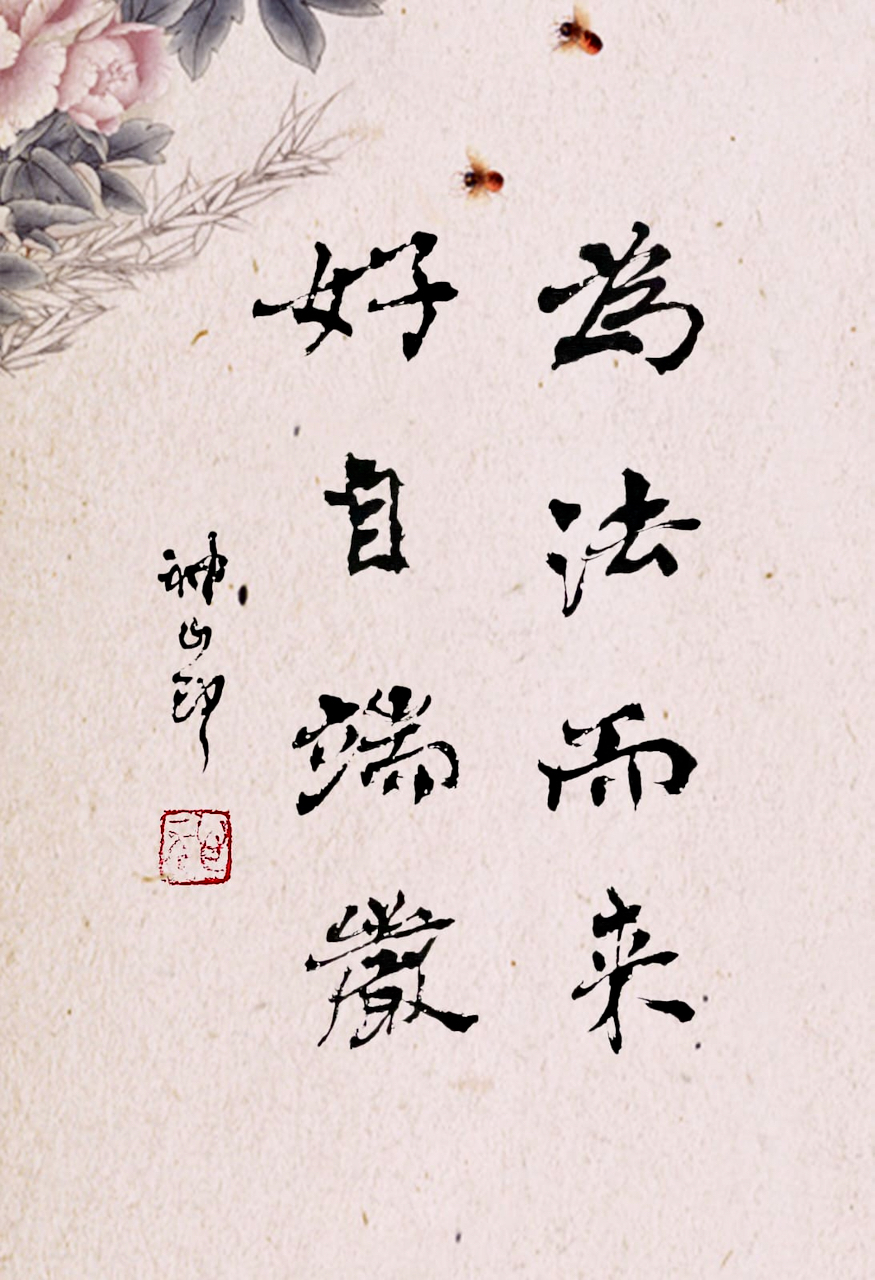 為法而来
好自端嚴
神山印